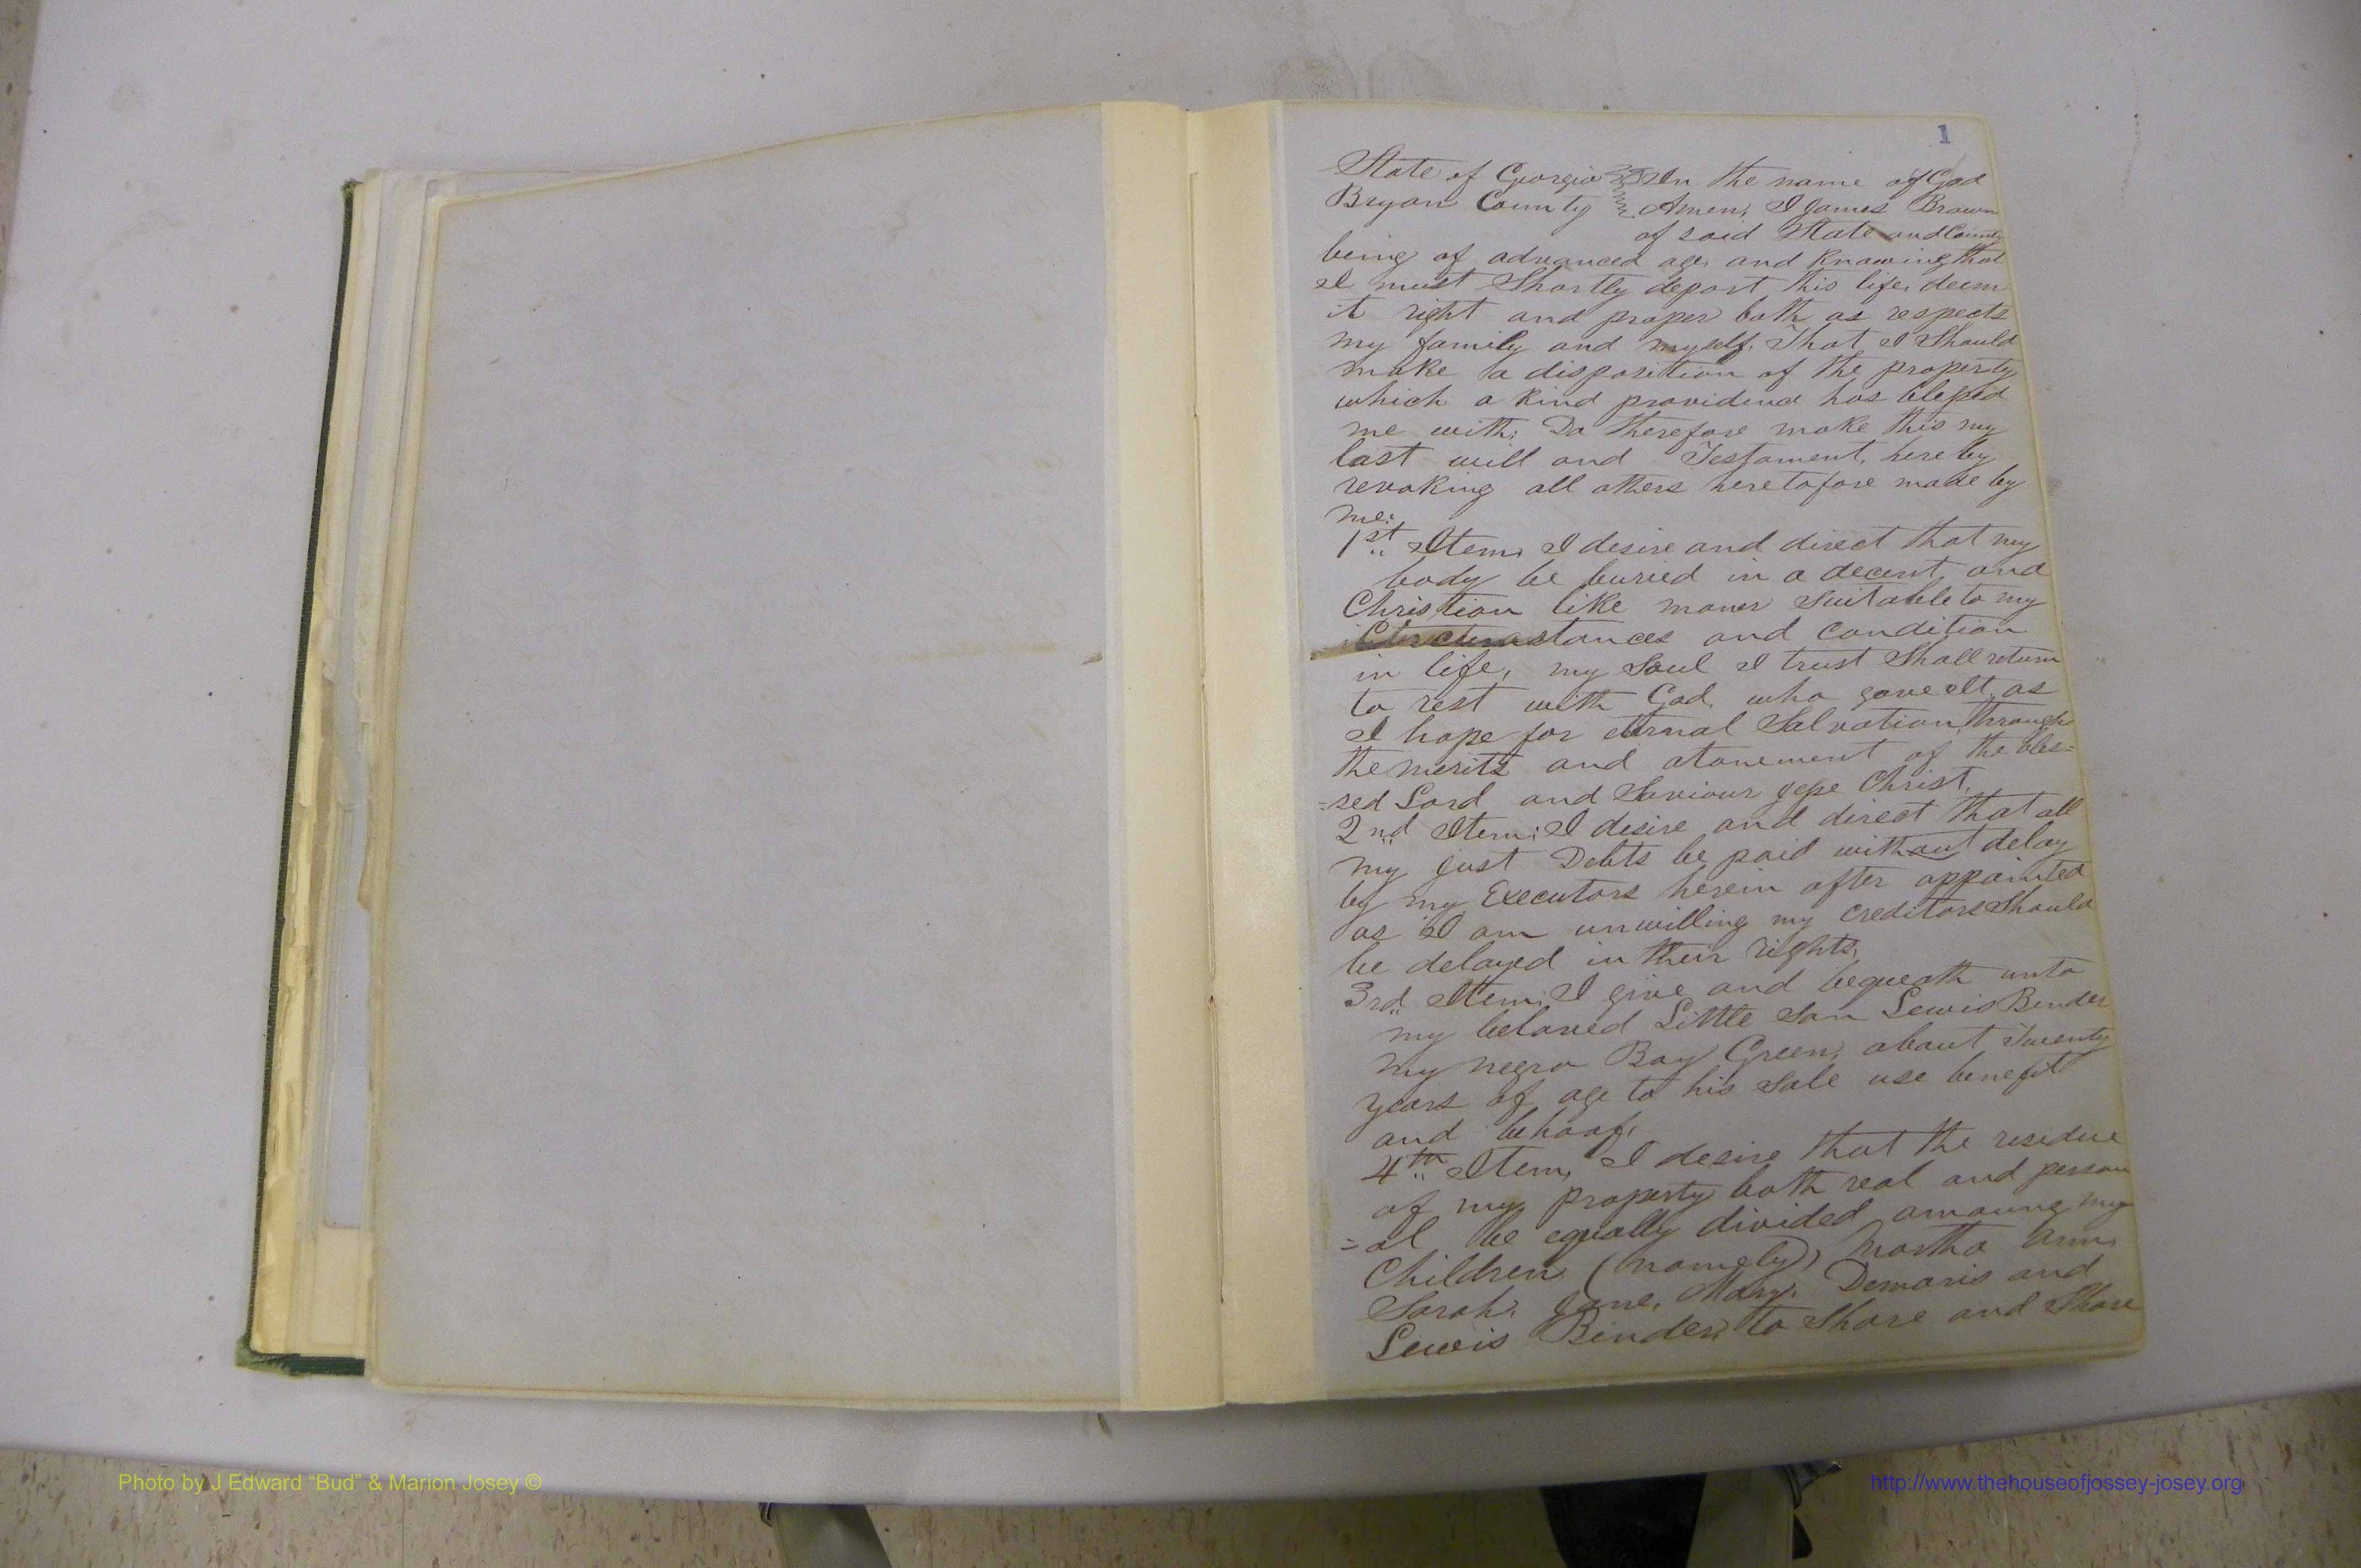 1
State of Georgia In the name of God
Bryan County Amen, I James Brown
of said State and County
being of advanced age, and Knowing that
I must Shortly depart this life, deem
it right and proper both as respects
my family and myself. That I Should
make a disposition of the property
which a Kind providence has blessed
me with; Do therefore make this my
last will and Testament, hereby
revoking all others heretofore made by
me:
1st Item, I desire and direct that my
body be buried in a decent and
Christian like maner Suitable to my
Circumstances and Condition
in life, my Soul I trust Shall return
to rest with God, who gave It, as
I hope for eternal Salvation, through
the merits and atonement of the bles=
=sed Lord and Saviour Jesse Christ.
2nd Item; I desire and direct that all
my just Debts be paid without delay
by my Executors herein after appointed
as I am unwilling my Creditors Should
be delayed in their rights,
3rd Item; I give and bequeath unto
my beloved Little Son Lewis Binder
my negro Boy Green, about Twenty
years of age to his Sole use benefit
and behoof,
4th Item, I desire that the residue
of my property both real and person
=al be equally divided amoung my
Children (namely) Martha Ann,
Sarah, Jane, Mary, Demaris and
Lewis Binder, to Share and Share
Photo by J Edward “Bud” & Marion Josey ©
http://www.thehouseofjossey-josey.org